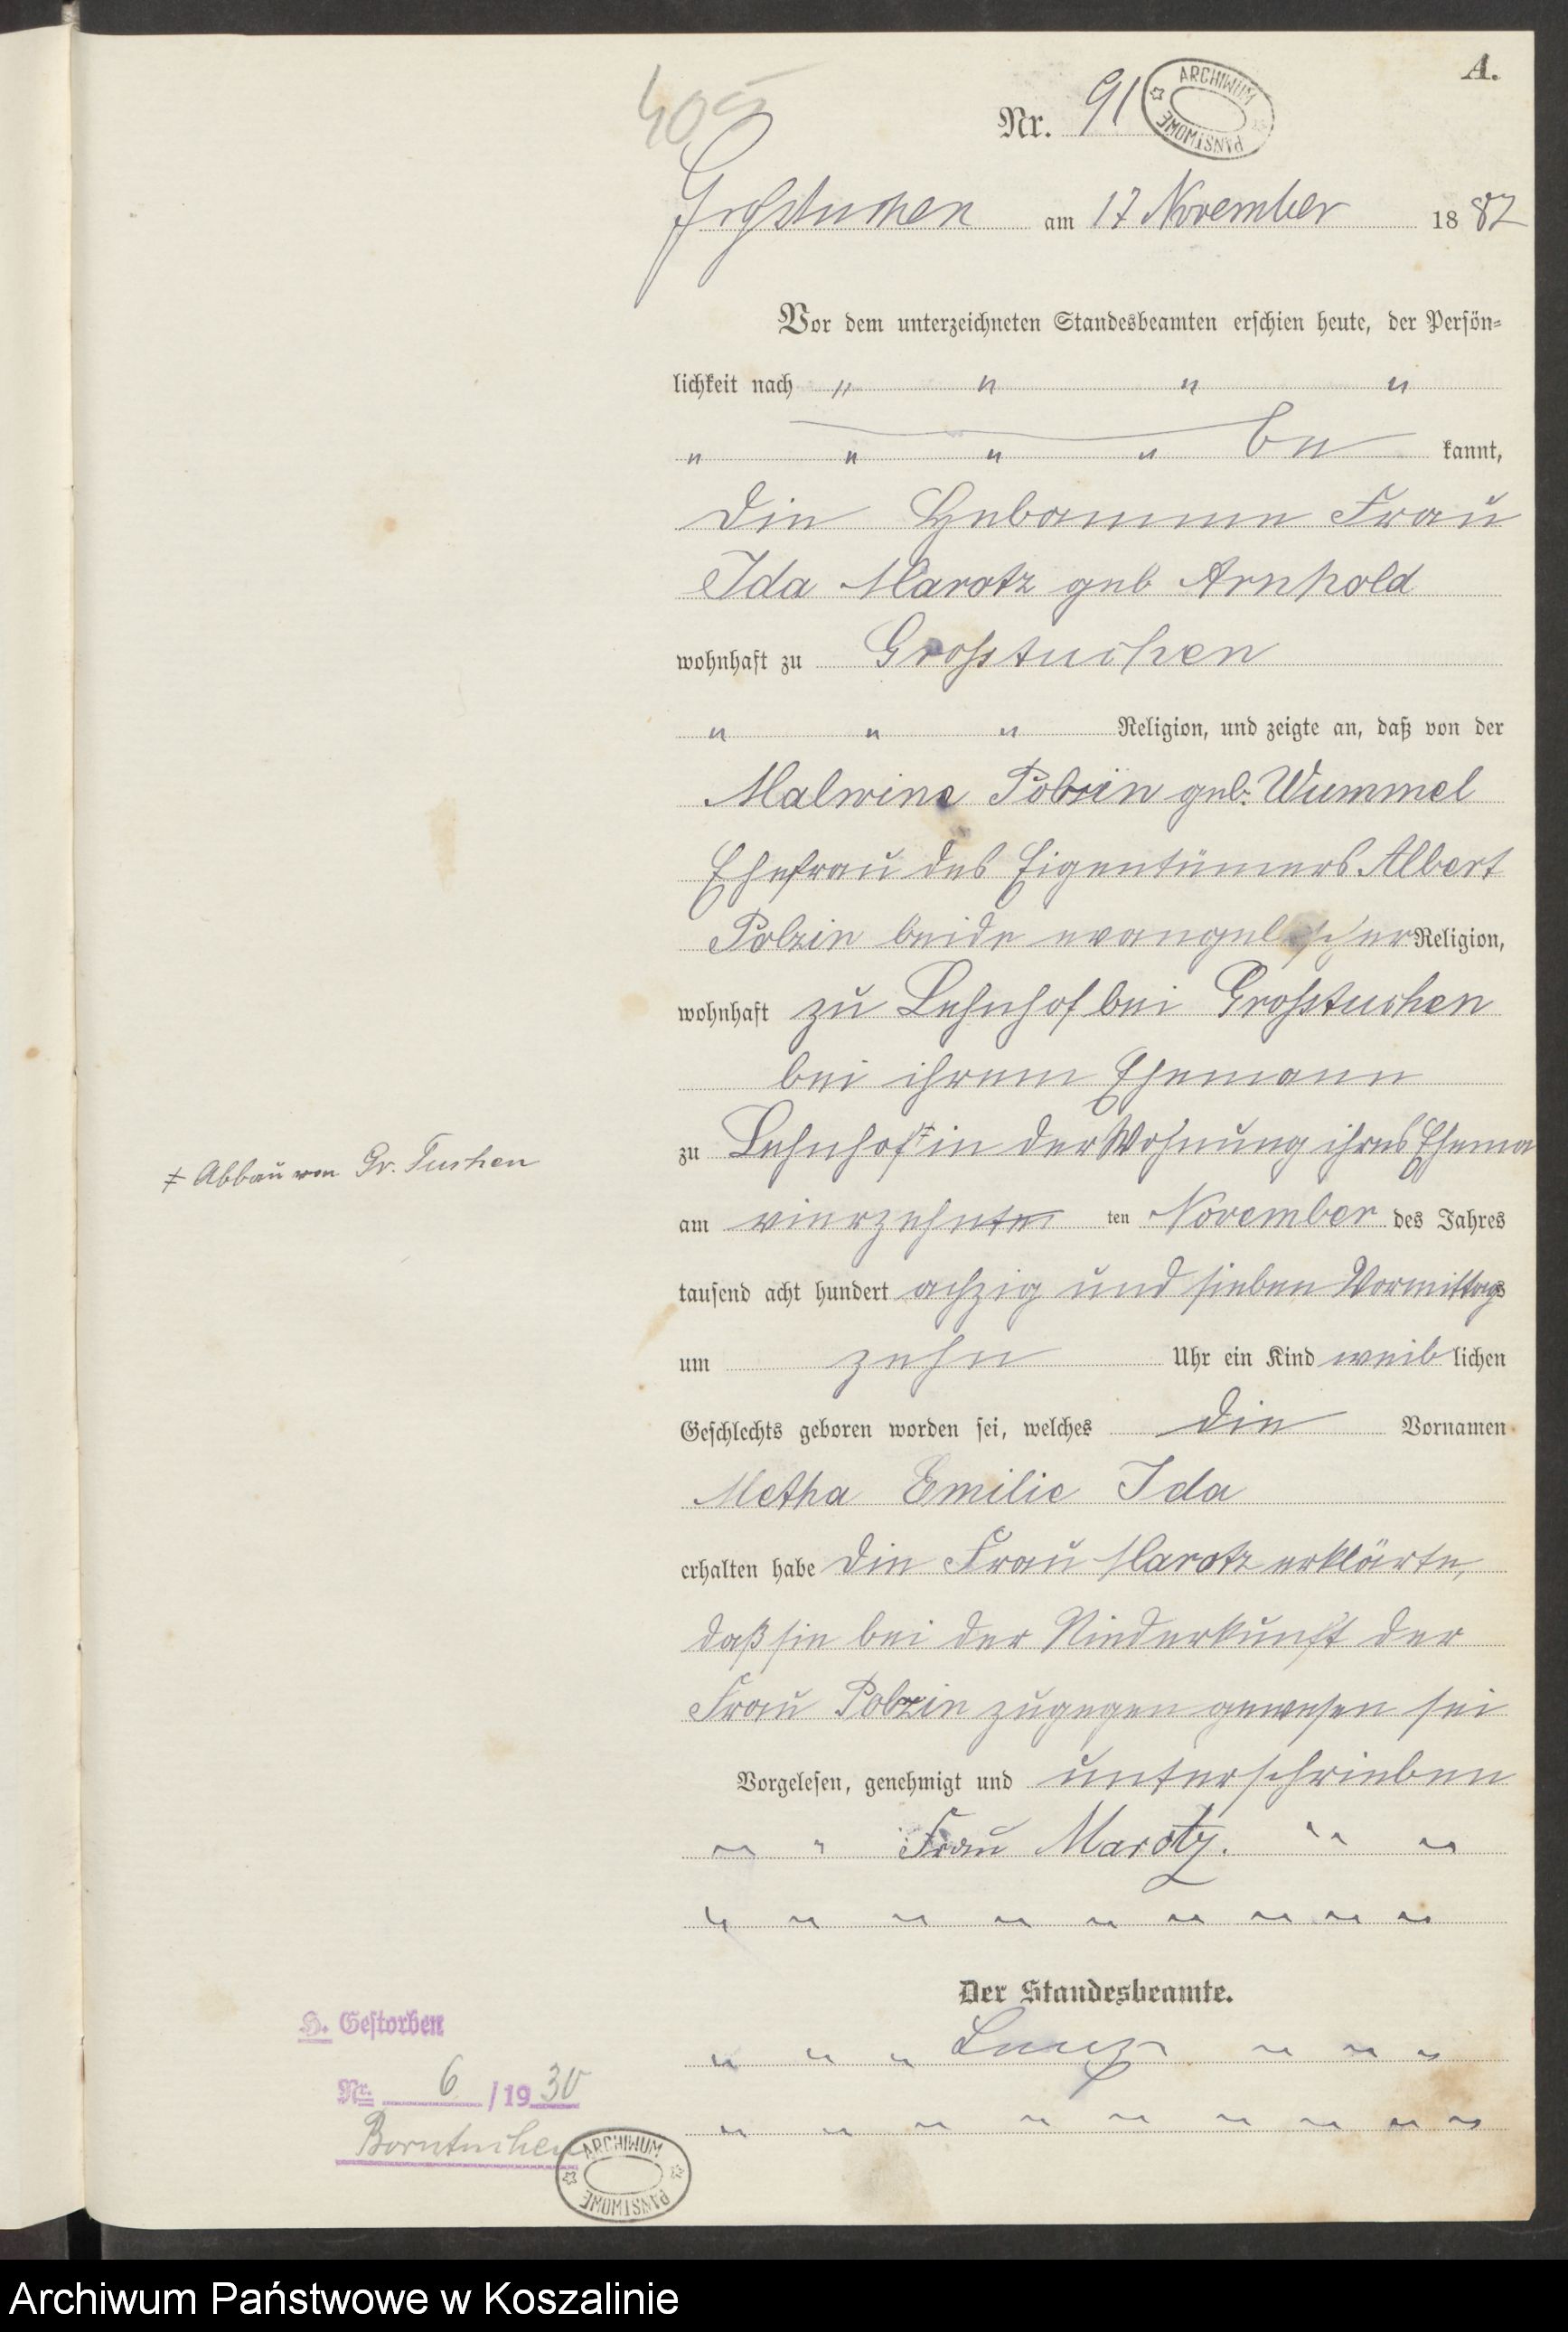 A.
405
Nr. 91
ARCHIWUM PAŃSTWOWE
Großtuchen am 17 November 1887
Vor dem unterzeichneten Standesbeamten erschien heute, der Persön-
lichkeit nach " " " "
" " " " be kannt,
die Hebamme Frau
Ida Marotz geb Arnhold
wohnhaft zu Grosstuchen
" " " Religion, und zeigte an, daß von der
Malwine Polzin geb. Wummel
Ehefrau des Eigentümers Albert
Polzin beide evangelischer Religion,
wohnhaft zu Lehnhof bei Grosstuchen
bei ihrem Ehemann
zu Lehnhof ǂ in der Wohnung ihres Ehema
ǂ Abbau von Gr. Tuchen
am vierzehnten ten November des Jahres
tausend acht hundert achzig und sieben Vormittags
um zehn Uhr ein Kind weib lichen
Geschlechts geboren worden sei, welches die Vornamen
Metha Emilie Ida
erhalten habe die Frau Marotz erklärte,
daß sie bei der Niederkunft der
Frau Polzin zugegen gewesen sei
Vorgelesen, genehmigt und unterschrieben
" " Frau Marotz. " "
" " " " " " " " "
Der Standesbeamte.
" " " " " "
" " " " " " " " "
H. Gestorben
Nr. 6 / 1930
Borntuchen
ARCHIWUM PAŃSTWOWE
Archiwum Państwowe w Koszalinie